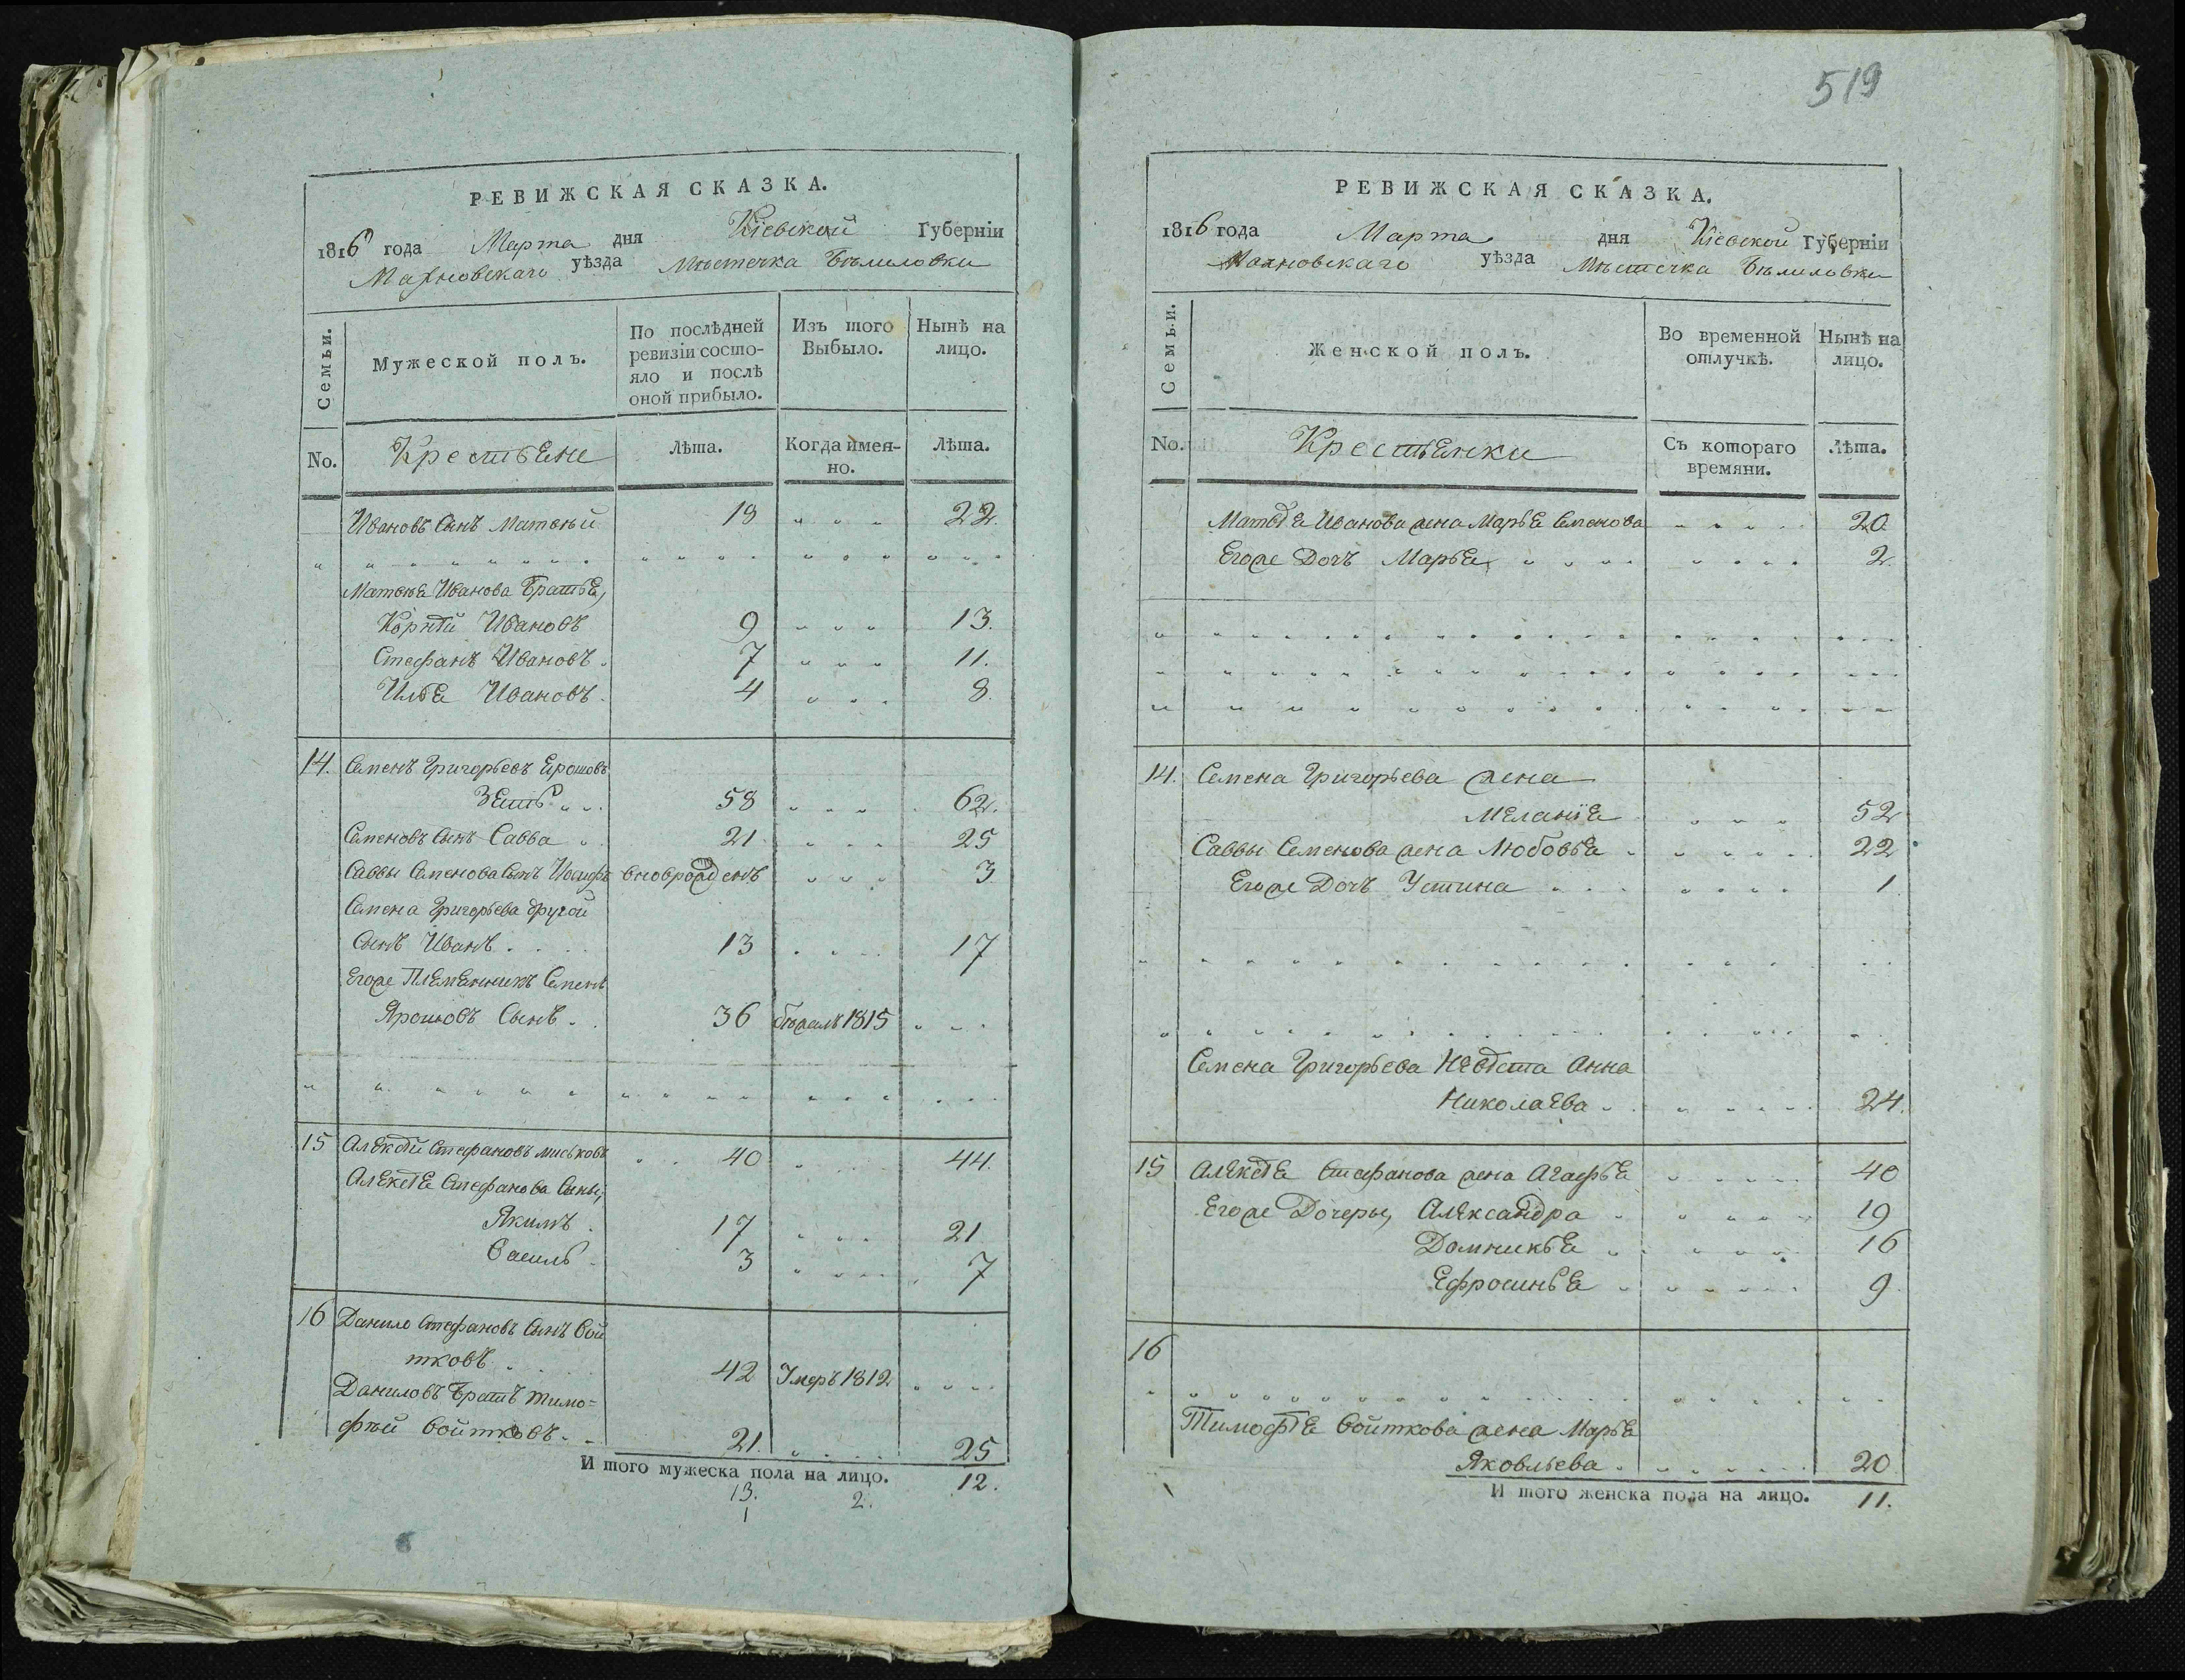 519
РЕВИЖСКАЯ СКАЗКА.
1816 года Марта дня Кіевской Губерніи
Махновскаго уѣзда Мѣстечка Бѣлиловки
Семьи. Мужеской полъ. По послѣдней ревизіи состояло и послѣ оной прибыло. Изъ того Выбыло. Нынѣ на лицо.
No. Крестьяне Лѣта. Когда имен-но. Лѣта.
Ивановъ Сынъ Матвѣй 18 22.
Матвѣя Иванова Братья,
Корнѣй Ивановъ 9 13.
Стефанъ Ивановъ 7 11.
Илья Ивановъ 4 8.
14. Семенъ Григорьевъ Ерошовъ
Зять 58 62.
Семеновъ Сынъ Савва 21 25
Саввы Семенова Сынъ Іосифъ вновьрожденъ 3
Семена Григорьева другой
Сынъ Иванъ 13 17
Егоже Племянникъ Семенъ
Ярошовъ Сынъ 36 бѣжалъ 1815
15 Алексѣй Стефановъ Миськовъ 40 44.
Алексѣя Стефанова Сыны,
Якимъ 17 21
Василь 3 7
16 Данило Стефановъ Сынъ Вой
тковъ 42 Умеръ 1812
Даниловъ Братъ Тимо=
фѣй Войтковъ 21. 25
И того мужеска пола на лицо. 12.
13. 2.
1
РЕВИЖСКАЯ СКАЗКА.
1816 года Марта дня Кіевской Губерніи
Махновскаго уѣзда Мѣстечка Бѣлиловки
Семьи. Женской полъ. Во временной отлучкѣ. Нынѣ на лицо.
No. Крестьянки Съ котораго времяни. Лѣта.
Матвѣя Иванова жена Марья Семенова 20
Егоже Дочь Марья 2.
14. Семена Григорьева жена
Меланія 52
Саввы Семенова жена Любовья 22
Егоже Дочь Устина 1
Семена Григорьева Невѣста Анна
Николаева 24.
15 Алексѣя Стефанова жена Агафья 40
Егоже Дочеры, Александра 19
Домникья 16
Ефросинья 9.
16
Тимофѣя Войткова жена Марья
Яковлѣва 20
И того женска пола на лицо. 11.